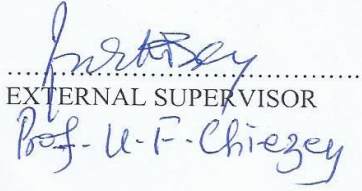 EXTERNAL SUPERVISOR
Prof. U. F. Chiezey